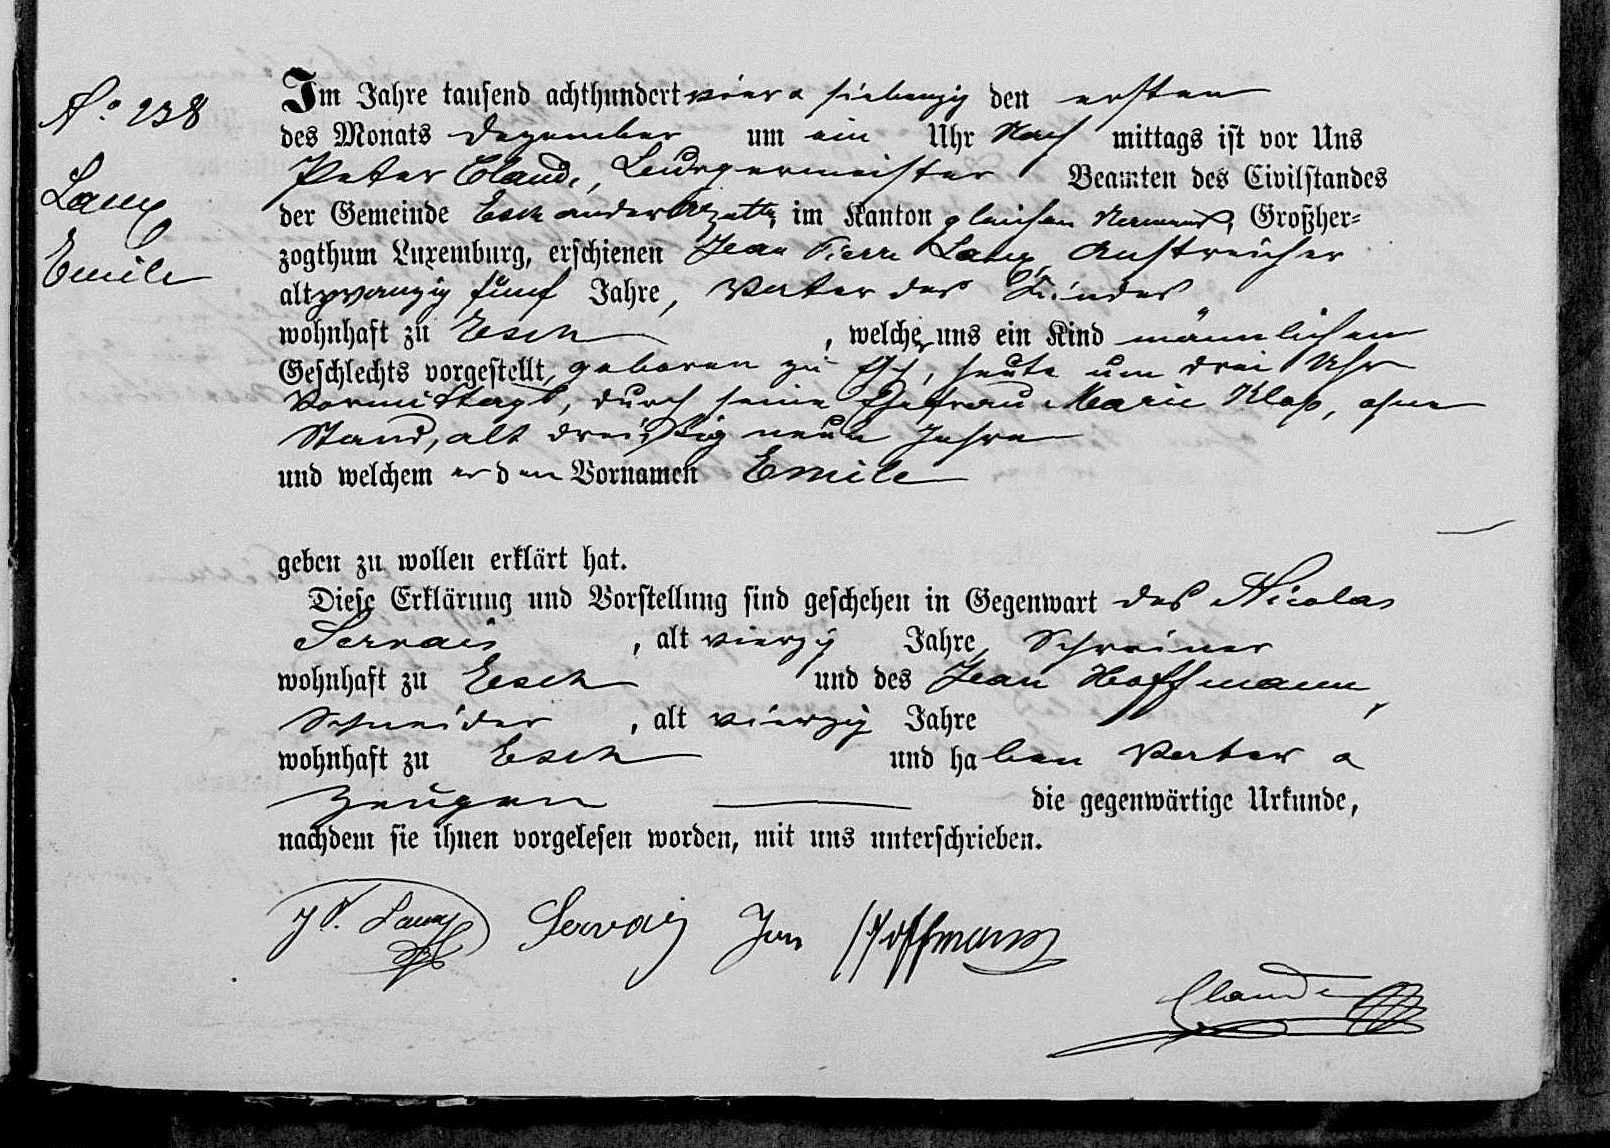 N° 238
Lamy
Emile
Im Jahre tausend achthundert vier & siebenzig den ersten
des Monats Dezember um ein Uhr Nach mittags ist vor Uns
Peter Claude, Bürgermeister Beamten des Civilstandes
der Gemeinde Esch an der Alzette, im Kanton gleichen Namens, Großher-
zogthum Luxemburg, erschienen Jean Pierre Lamy, Anstreicher
alt zwanzig fünf Jahre, Vater des Kindes
wohnhaft zu Esch, welcher uns ein Kind männlichen
Geschlechts vorgestellt, geboren zu Esch, heute um drei Uhr
Vormittags, durch seine Ehefrau Marie Klop, ohne
Stand, alt dreißig neun Jahre
und welchem er den Vornamen Emile
geben zu wollen erklärt hat.
Diese Erklärung und Vorstellung sind geschehen in Gegenwart des Nicolas
Servais, alt vierzig Jahre, Schreiner
wohnhaft zu Esch und des Jean Hoffmann,
Schneider, alt vierzig Jahre
wohnhaft zu Esch und haben Vater &
Zeugen die gegenwärtige Urkunde,
nachdem sie ihnen vorgelesen worden, mit uns unterschrieben.
J P. Lamy Servais Jean Hoffmann
Claude